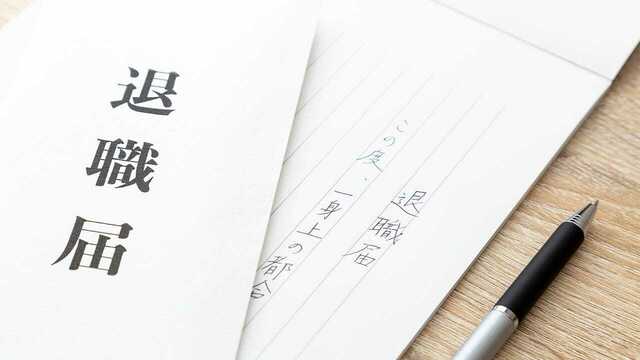 退職届
退職届
この度、
一身上の都合